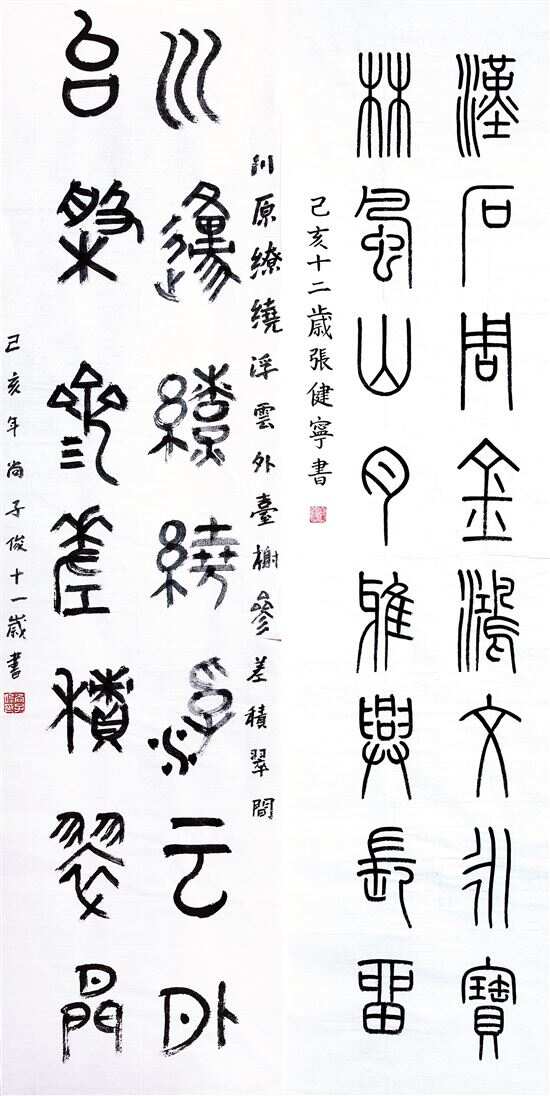 漢石周金鴻文永寶
林風山月雅興長留
己亥十二歲張健寧書
川原繚繞浮雲外臺榭參差積翠間
川邍繚繞浮云外
台榭參差積翠間
己亥年尚子俊十一歲書